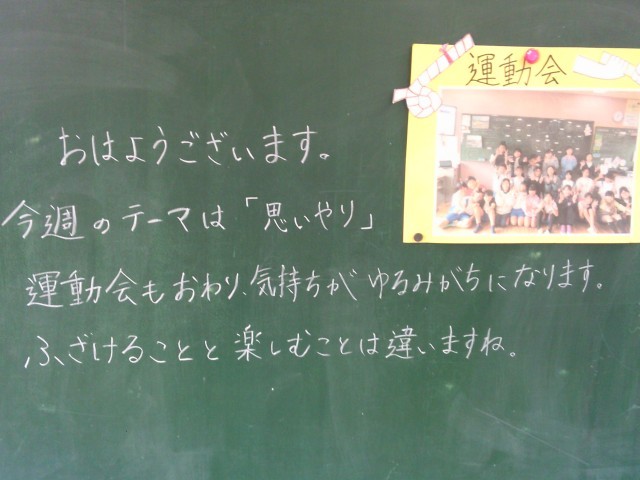 運動会
おはようございます。
今週のテーマは「思いやり」
運動会もおわり、気持ちがゆるみがちになります。
ふざけることと楽しむことは違いますね。